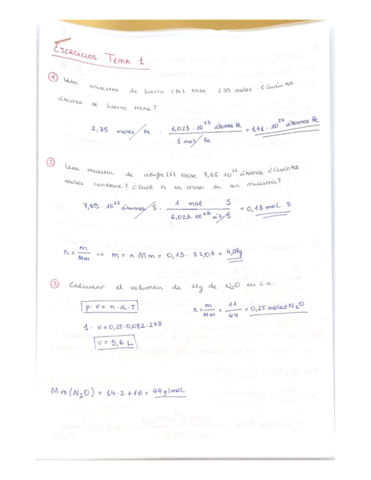 EJERCICIOS TEMA 1.
① Una muestra de hierro (Fe) tiene 2,35 moles. ¿Cuántos
átomos de hierro tiene?
2,35 moles Fe · 6,023·10²³ átomos Fe / 1 mol Fe = 1,41·10²⁴ átomos Fe
② Una muestra de azufre (S) tiene 7,65·10²² átomos ¿Cuántos
moles contiene? ¿Cuál es la masa de esa muestra?
7,65·10²² átomos S · 1 mol S / 6,023·10²³ át S = 0,13 mol S
n = m/Mm → m = n·Mm = 0,13·32,07 = 4,08g
③ Calcular el volumen de 11g de N₂O en c.n.
p·V = n·R·T
n = m/Mm = 11/44 = 0,25 moles N₂O
1·V = 0,25·0,082·273
V = 5,6 L
Mm(N₂O) = 14·2+16 = 44 g/mol